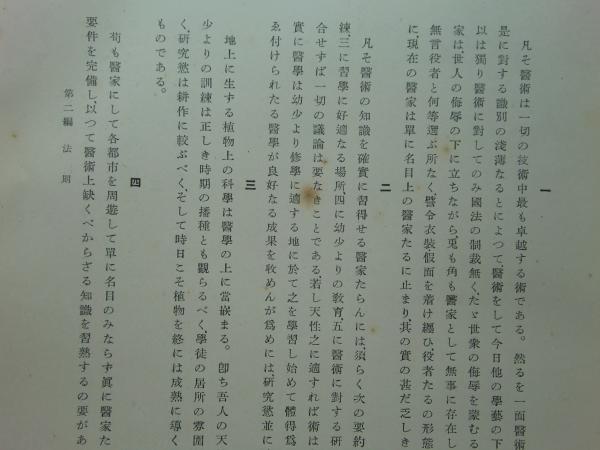 一
凡そ醫術は一切の技術中最も卓越する術である。然るを一面醫術
是に對する識別の淺薄なるとによつて醫術をして今日他の學藝の下
以は獨り醫術に對してのみ國法の制裁無く、たゞ世衆の侮辱を蒙むる
家は、世人の侮辱の下に立ちながら、兎も角も醫家として無事に存在し
無言役者と何等選ぶ所なく、譬令衣裝、假面を着け纒ひ、役者たるの形態
に、現在の醫家は單に名目上の醫家たるに止まり、其の實の甚だ乏しき
二
凡そ醫術の知識を確實に習得せる醫家たらんには、須らく次の要約
練、三に習學に好適なる場所四に幼少よりの敎育、五に醫術に對する硏
合せずば一切の議論は要なきことである。若し天性之に適すれば術は
實に醫學は幼少より修學に適する地に於て之を學習し始めて體得爲
ゑ付けられたる醫學が良好なる成果を收めんが爲めには、硏究慾並に
三
地上に生する植物上の科學は醫學の上に當嵌まる。卽ち吾人の天
少よりの訓練は正しき時期の播種とも觀らるべく、學徒の居所の雰圍
く、硏究慾は耕作に較ぶべく、そして時日こそ植物を終には成熟に導く
ものである。
四
苟も醫家にして各都市を周遊して單に名目のみならず眞に醫家た
要件を完備し、以つて醫術上缺くべからざる知識を習熟するの要があ
第二編 法則